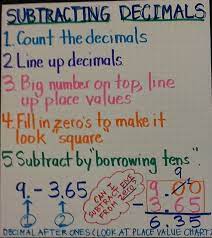 SUBTRACTING DECIMALS
1. Count the decimals
2. Line up decimals
3. Big number on top, line
up place values
4. Fill in zero's to make it
look "square"
5 Subtract by "borrowing tens".
9. - 3.65
① ②
CAN I
SUBTRACT FIVE
FROM zero?
9
9.00
- 3.65
6.35
DECIMAL AFTER ONES (LOOK AT PLACE VALUE CHART